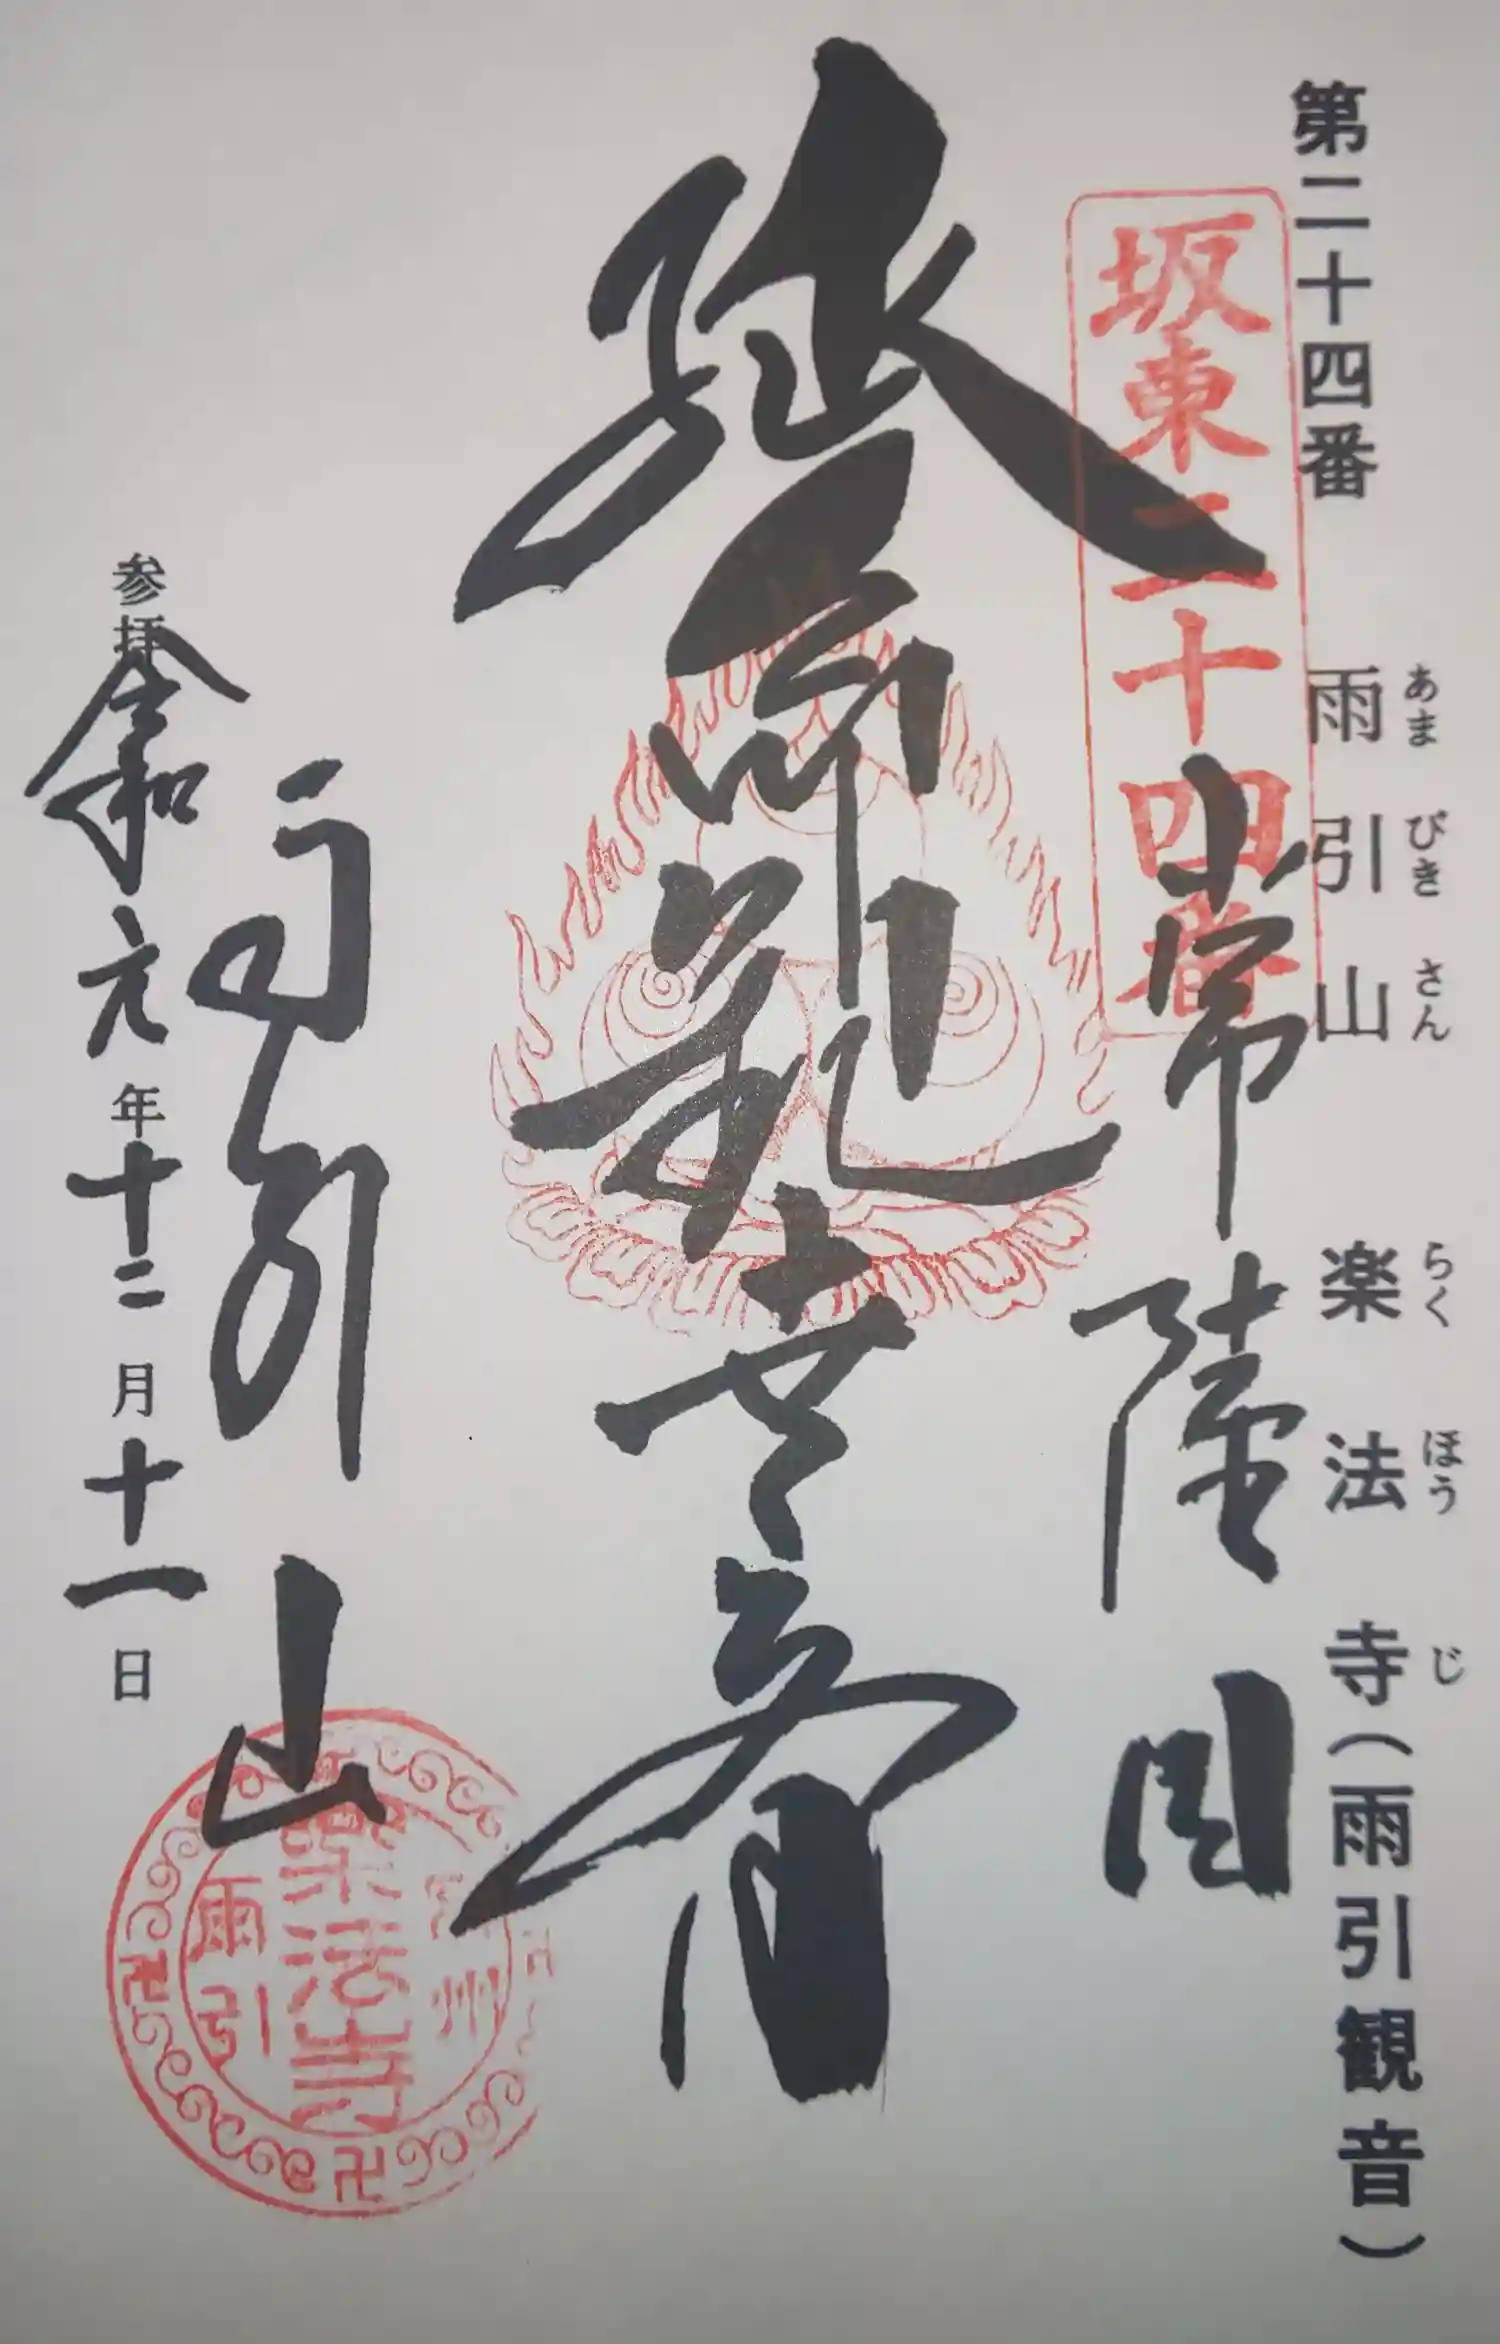 第二十四番 雨引山 楽法寺（雨引観音）
あま びき さん らく ほう じ
坂東二十四番
常陸国
延命観世音
雨引山
参拝 令和元年十二月十一日
楽法寺
雨引